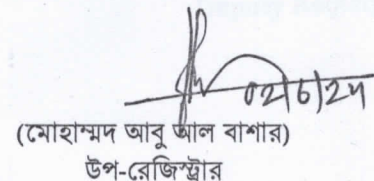 02/6/24
(মোহাম্মদ আবু আল বাশার)
উপ-রেজিস্ট্রার